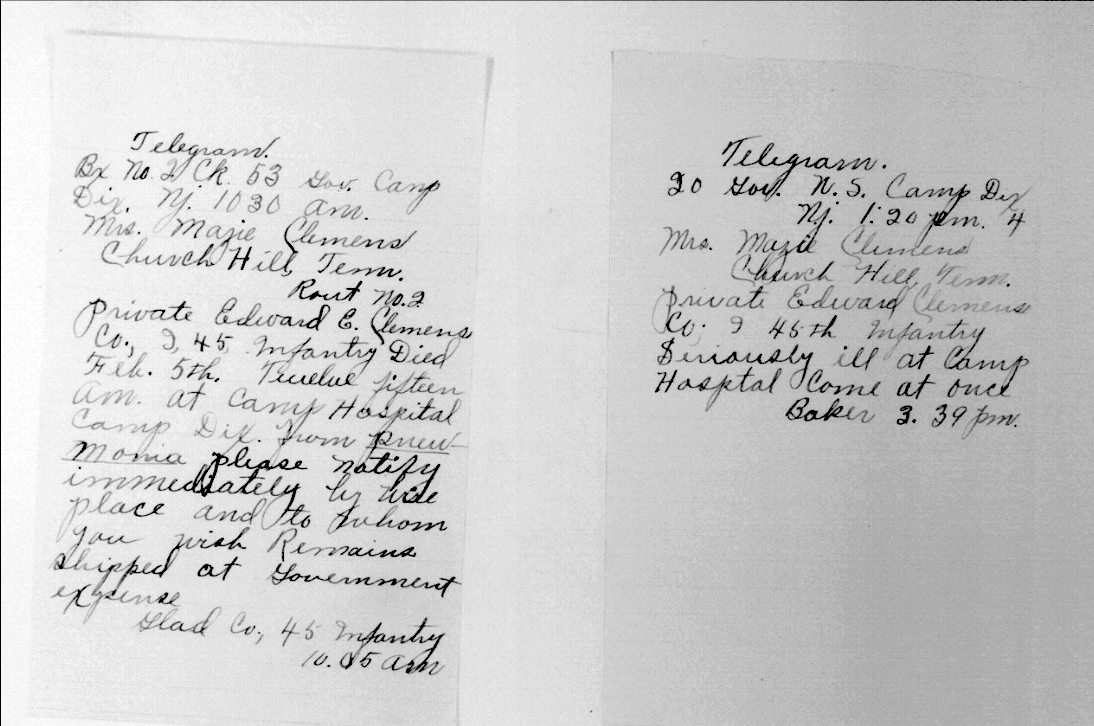 Telegram.
Bx No. 2 Ck. 53 Gov. Camp
Dix. Nj. 10 30 am.
Mrs. Mazie Clemens
Church Hill, Tenn.
Rout No. 2
Private Edward E. Clemens
Co., I, 45, Infantry Died
Feb. 5th. Twelve fifteen
am. at Camp Hospital
Camp Dix. from pneu-
monia please notify
immediately by wire
place and to whom
you wish Remains
shipped at Government
expense
Glad Co., 45 Infantry
10.05 am
Telegram.
20 Gov. N. S. Camp Dix
Nj. 1:20 pm. 4
Mrs. Mazie Clemens
Church Hill, Tenn.
Private Edward Clemens
Co; I 45th Infantry
Seriously ill at Camp
Hosptal Come at once
Baker 3. 39 pm.